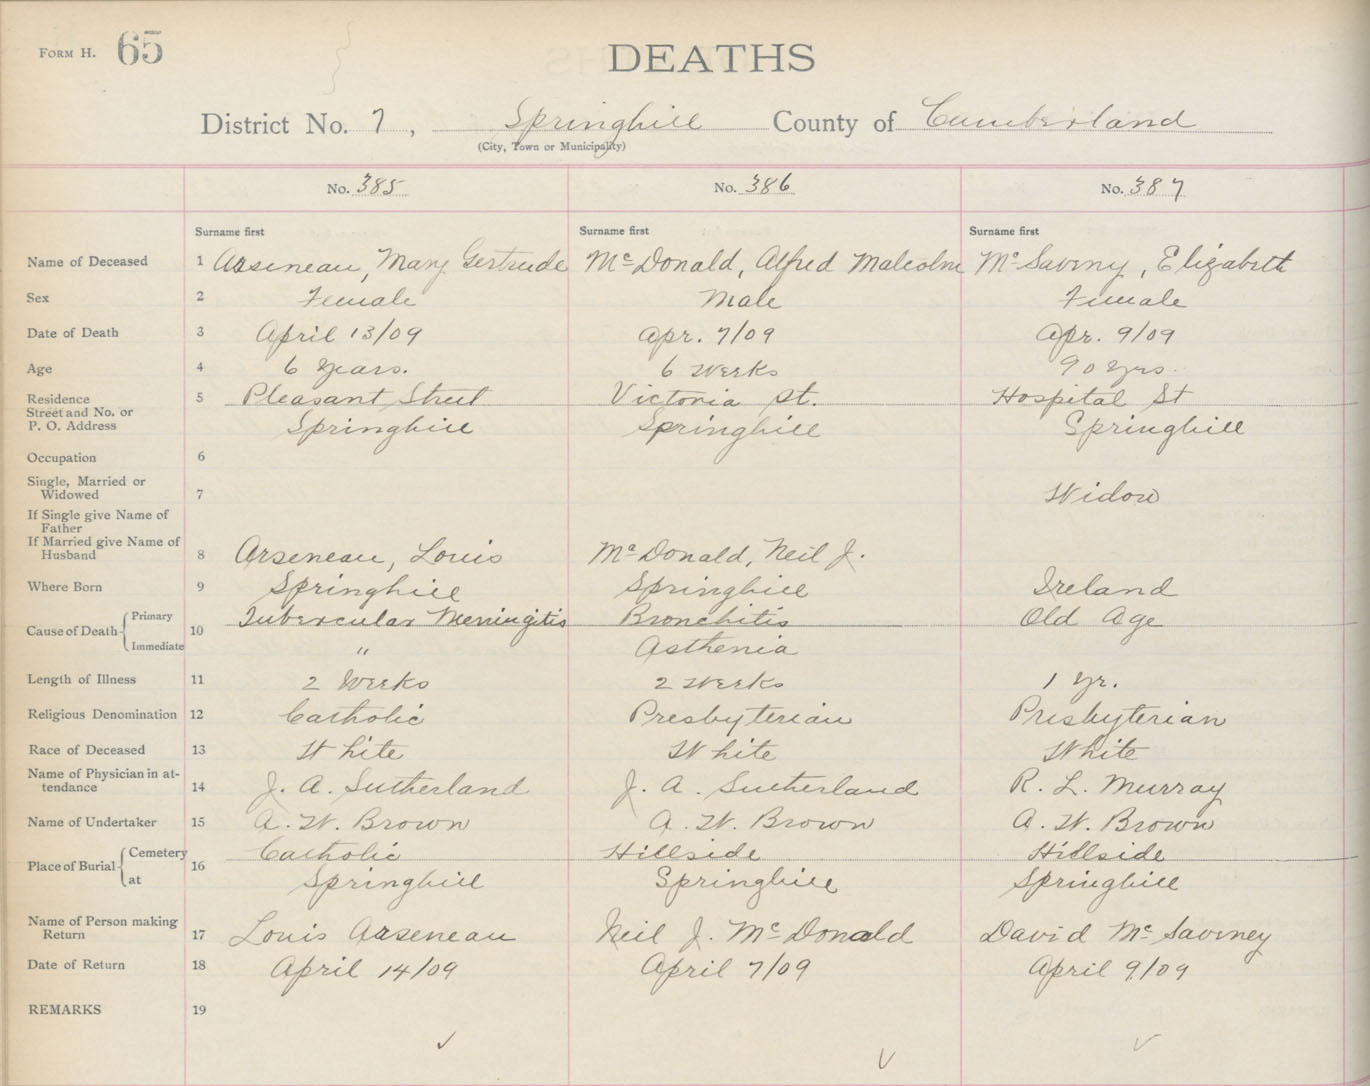 FORM H. 65
DEATHS
District No. 7, Springhill County of Cumberland
(City, Town or Municipality)
No. 385 No. 386 No. 387
Surname first Surname first Surname first
Name of Deceased 1 Arseneau, Mary Gertrude McDonald, Alfred Malcolm McSaviny, Elizabeth
Sex 2 Female Male Female
Date of Death 3 April 13/09 Apr. 7/09 Apr. 9/09
Age 4 6 Years. 6 Weeks 90 Yrs.
Residence 5 Pleasant Street Victoria St. Hospital St
Street and No. or
P. O. Address Springhill Springhill Springhill
Occupation 6
Single, Married or
Widowed 7 Widow
If Single give Name of
Father
If Married give Name of
Husband 8 Arseneau, Louis McDonald, Neil J.
Where Born 9 Springhill Springhill Ireland
Cause of Death Primary 10 Tubercular Meningitis Bronchitis Old Age
Immediate " Asthenia
Length of Illness 11 2 Weeks 2 Weeks 1 Yr.
Religious Denomination 12 Catholic Presbyterian Presbyterian
Race of Deceased 13 White White White
Name of Physician in at-
tendance 14 J. A. Sutherland J. A. Sutherland R. L. Murray
Name of Undertaker 15 A. W. Brown A. W. Brown A. W. Brown
Place of Burial Cemetery 16 Catholic Hillside Hillside
at Springhill Springhill Springhill
Name of Person making
Return 17 Louis Arseneau Neil J. McDonald David McSaviney
Date of Return 18 April 14/09 April 7/09 April 9/09
REMARKS 19